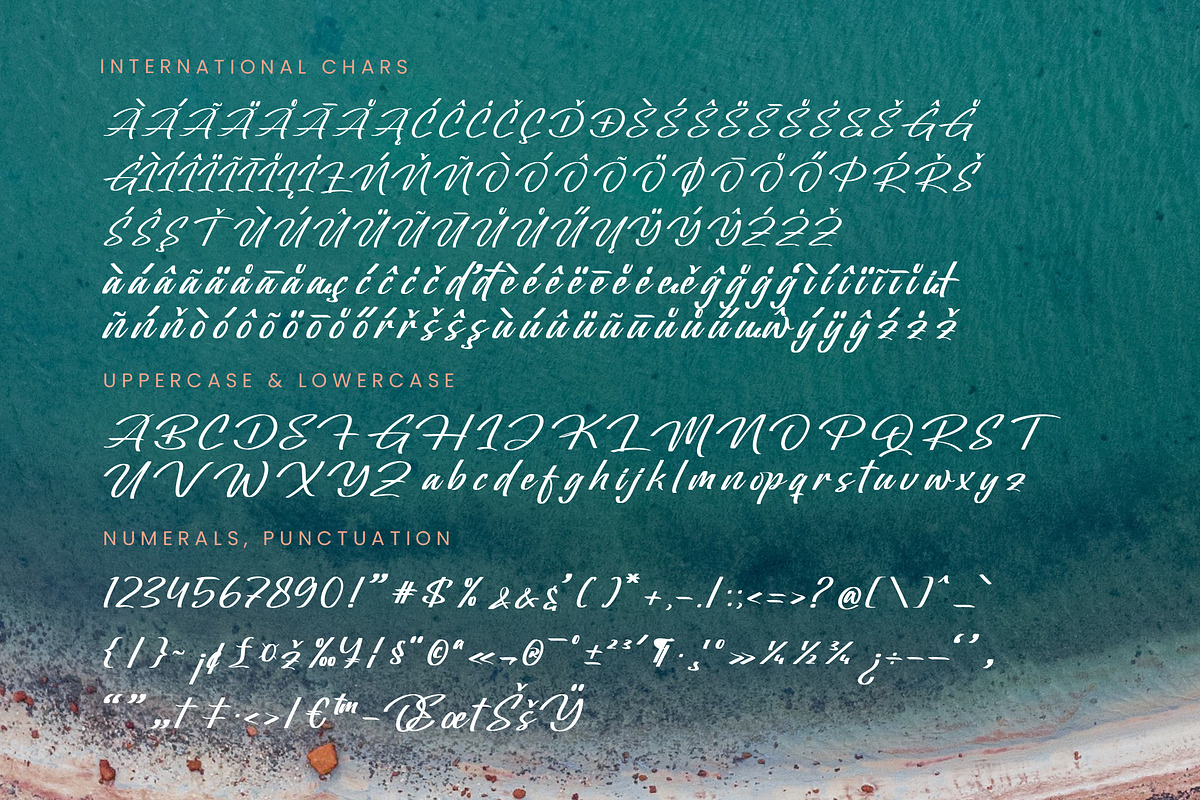 INTERNATIONAL CHARS
ÀÁÃÄÅĀÅĄĆĈĊČÇĎĐÈÉÊËĒĖĘĚĜ
ÌÍÎÏĨĪĮİŁŃŇÑÒÓÔÕÖØŌŐÞŔŘŠ
ŚŜŞŤÙÚÛÜŨŪŮŰŲŸÝŶŹŻŽ
àáâãäåāåąçćĉċčďđèéêëēėęěĝġģìíîïĩī
ñńňòóôõöōőŕřšŝşùúûüũūůűųŵýÿŷźżž
UPPERCASE & LOWERCASE
ABCDEFGHIJKLMNOPQRST
UVWXYZ abcdefghijklmnopqrstuvwxyz
NUMERALS, PUNCTUATION
1234567890!”#$%&&&’()*+,-./:;<=>?@[\]^_`
{|}~¡¢£¤ž‰¥¦§¨©ª«¬®¯°±²³´¶·¸¹º»¼½¾¿÷–—‘’‚
“”„†‡·<>/€™-Œœ†ŠšŸ